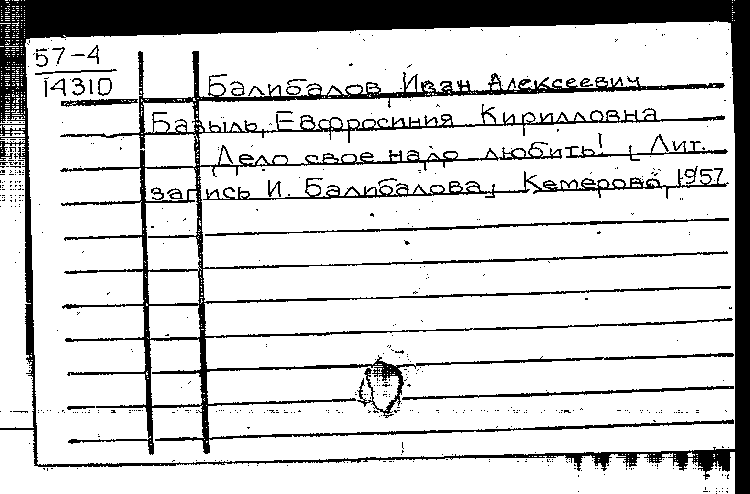 57-4
14310
Балибалов, Иван Алексеевич
Базыль, Евфросиния Кирилловна
Дело свое надо любить! [Лит.
запись И. Балибалова] Кемерово, 1957